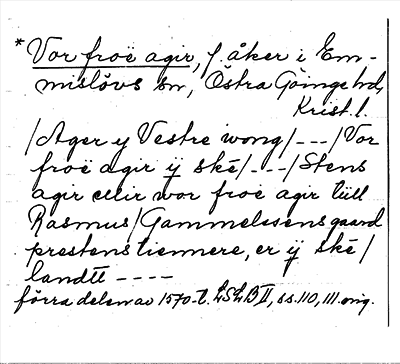 * Vor froë agir, f. åker i Em-
mislövs sn, Östra Göinge hd,
Krist. l.
/Ager y Vestre wong/---/Vor
froë agir ÿ skë/---/Stens
agir ellir wor froë agir tiill
Rasmus/Gammelssens gaard
prestens tiennere, er ÿ skë/
landtt ----
förra delen av 1570-t. LSLB II, ss. 110, 111. orig.